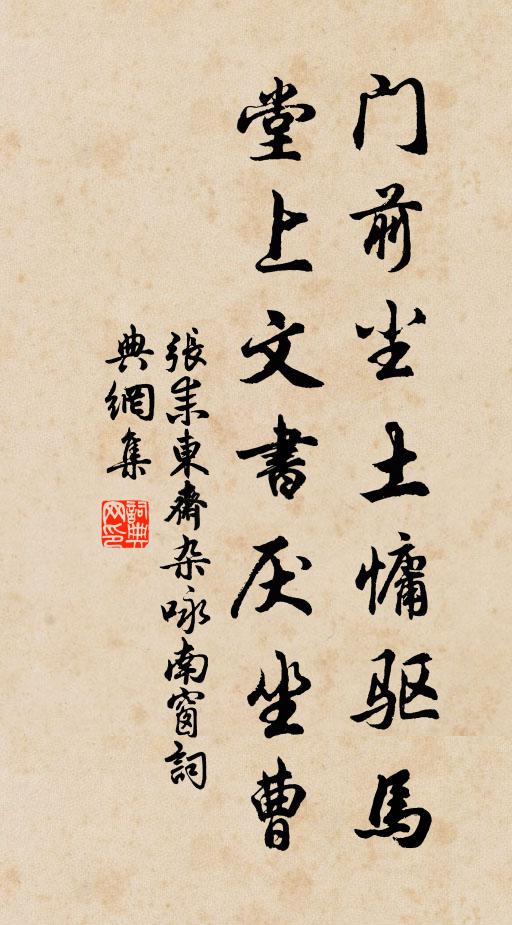 门前尘土慵驱馬
堂上文書厌坐曹
張耒東齋杂咏南窗詞
典網集
詞典网印